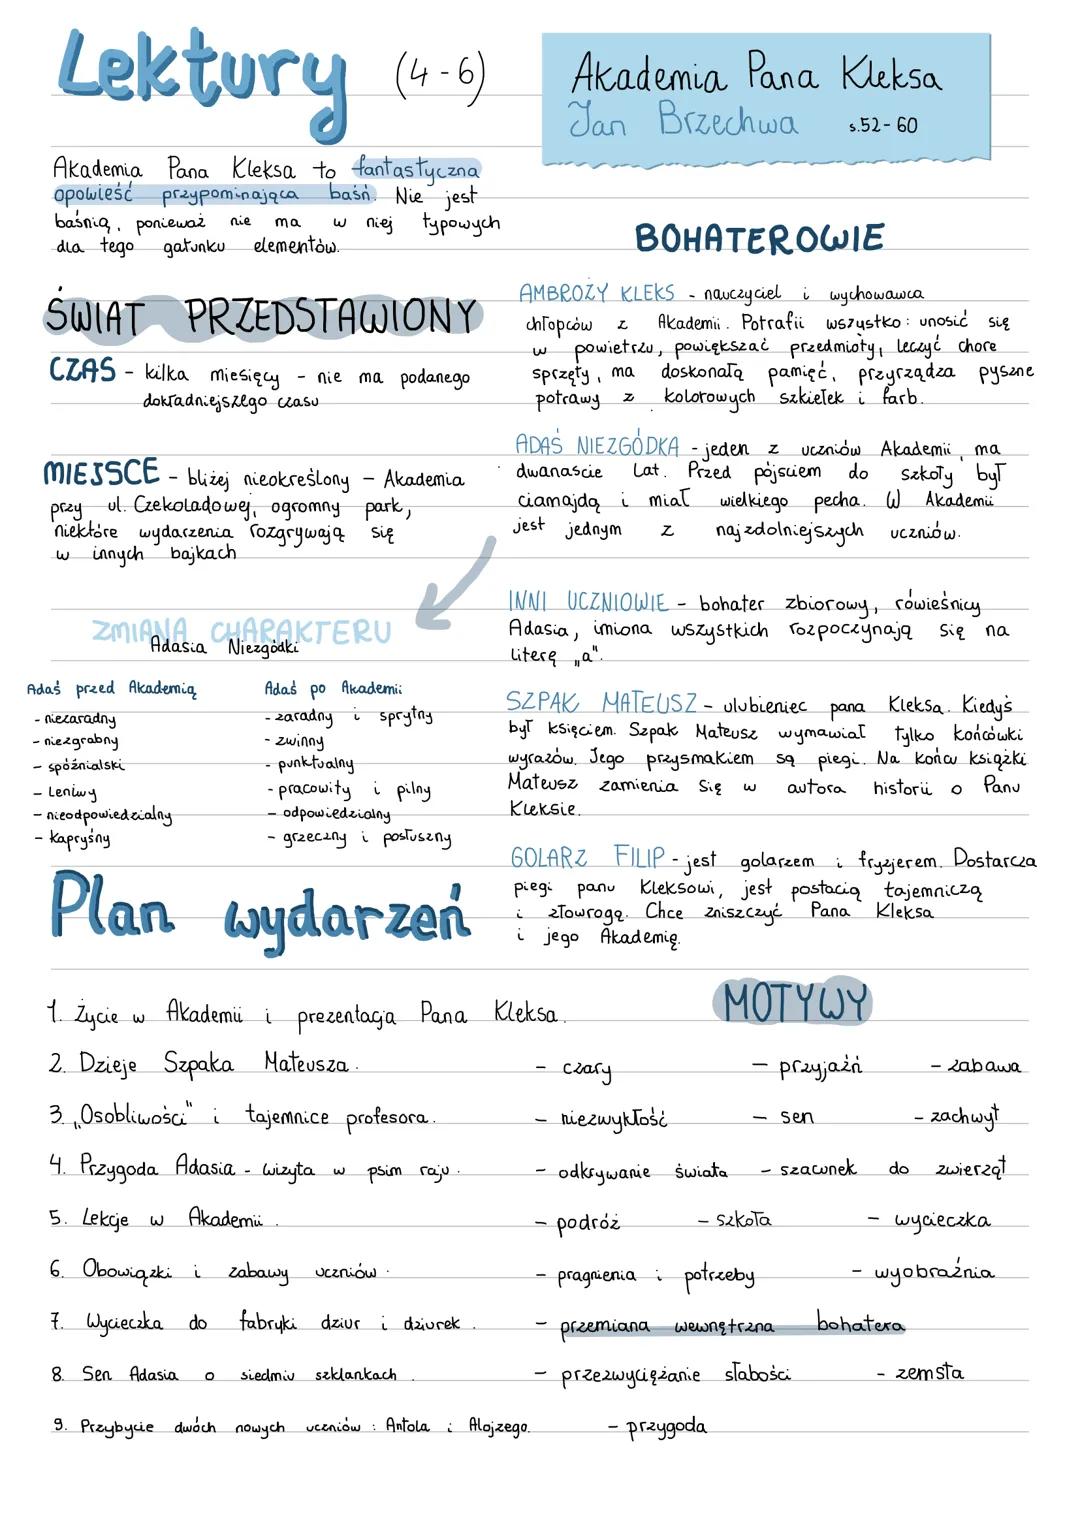 Lektury (4-6)
Akademia Pana Kleksa
Jan Brzechwa s.52-60
Akademia Pana Kleksa to fantastyczna
opowieść przypominająca baśń. Nie jest
baśnią, ponieważ nie ma w niej typowych
dla tego gatunku elementów.
ŚWIAT PRZEDSTAWIONY
CZAS - kilka miesięcy - nie ma podanego
dokładniejszego czasu
MIEJSCE - bliżej nieokreślony - Akademia
przy ul. Czekoladowej, ogromny park,
niektóre wydarzenia rozgrywają się
w innych bajkach
ZMIANA CHARAKTERU
Adasia Niezgódki
Adaś przed Akademią
- niezaradny
- niezgrabny
- spóźnialski
- leniwy
- nieodpowiedzialny
- kapryśny
Adaś po Akademii
- zaradny i sprytny
- zwinny
- punktualny
- pracowity i pilny
- odpowiedzialny
- grzeczny i posłuszny
BOHATEROWIE
AMBROŻY KLEKS - nauczyciel i wychowawca
chłopców z Akademii. Potrafii wszystko: unosić się
w powietrzu, powiększać przedmioty, leczyć chore
sprzęty, ma doskonałą pamięć, przyrządza pyszne
potrawy z kolorowych szkiełek i farb.
ADAŚ NIEZGÓDKA - jeden z uczniów Akademii, ma
dwanaście lat. Przed pójściem do szkoły był
ciamajdą i miał wielkiego pecha. W Akademii
jest jednym z najzdolniejszych uczniów.
INNI UCZNIOWIE - bohater zbiorowy, rówieśnicy
Adasia, imiona wszystkich rozpoczynają się na
literę „a".
SZPAK MATEUSZ - ulubieniec pana Kleksa. Kiedyś
był księciem. Szpak Mateusz wymawiał tylko końcówki
wyrazów. Jego przysmakiem są piegi. Na końcu książki
Mateusz zamienia się w autora historii o Panu
Kleksie.
GOLARZ FILIP - jest golarzem i fryzjerem. Dostarcza
piegi panu Kleksowi, jest postacią tajemniczą
i złowrogą. Chce zniszczyć Pana Kleksa
i jego Akademię.
Plan wydarzeń
1. Życie w Akademii i prezentacja Pana Kleksa.
2. Dzieje Szpaka Mateusza.
3. „Osobliwości" i tajemnice profesora.
4. Przygoda Adasia - wizyta w psim raju.
5. Lekcje w Akademii.
6. Obowiązki i zabawy uczniów.
7. Wycieczka do fabryki dziur i dziurek.
8. Sen Adasia o siedmiu szklankach.
9. Przybycie dwóch nowych uczniów: Antola i Alojzego.
MOTYWY
- czary - przyjaźń - zabawa
- niezwykłość - sen - zachwyt
- odkrywanie świata - szacunek do zwierząt
- podróż - szkoła - wycieczka
- pragnienia i potrzeby - wyobraźnia
- przemiana wewnętrzna bohatera
- przezwyciężanie słabości - zemsta
- przygoda